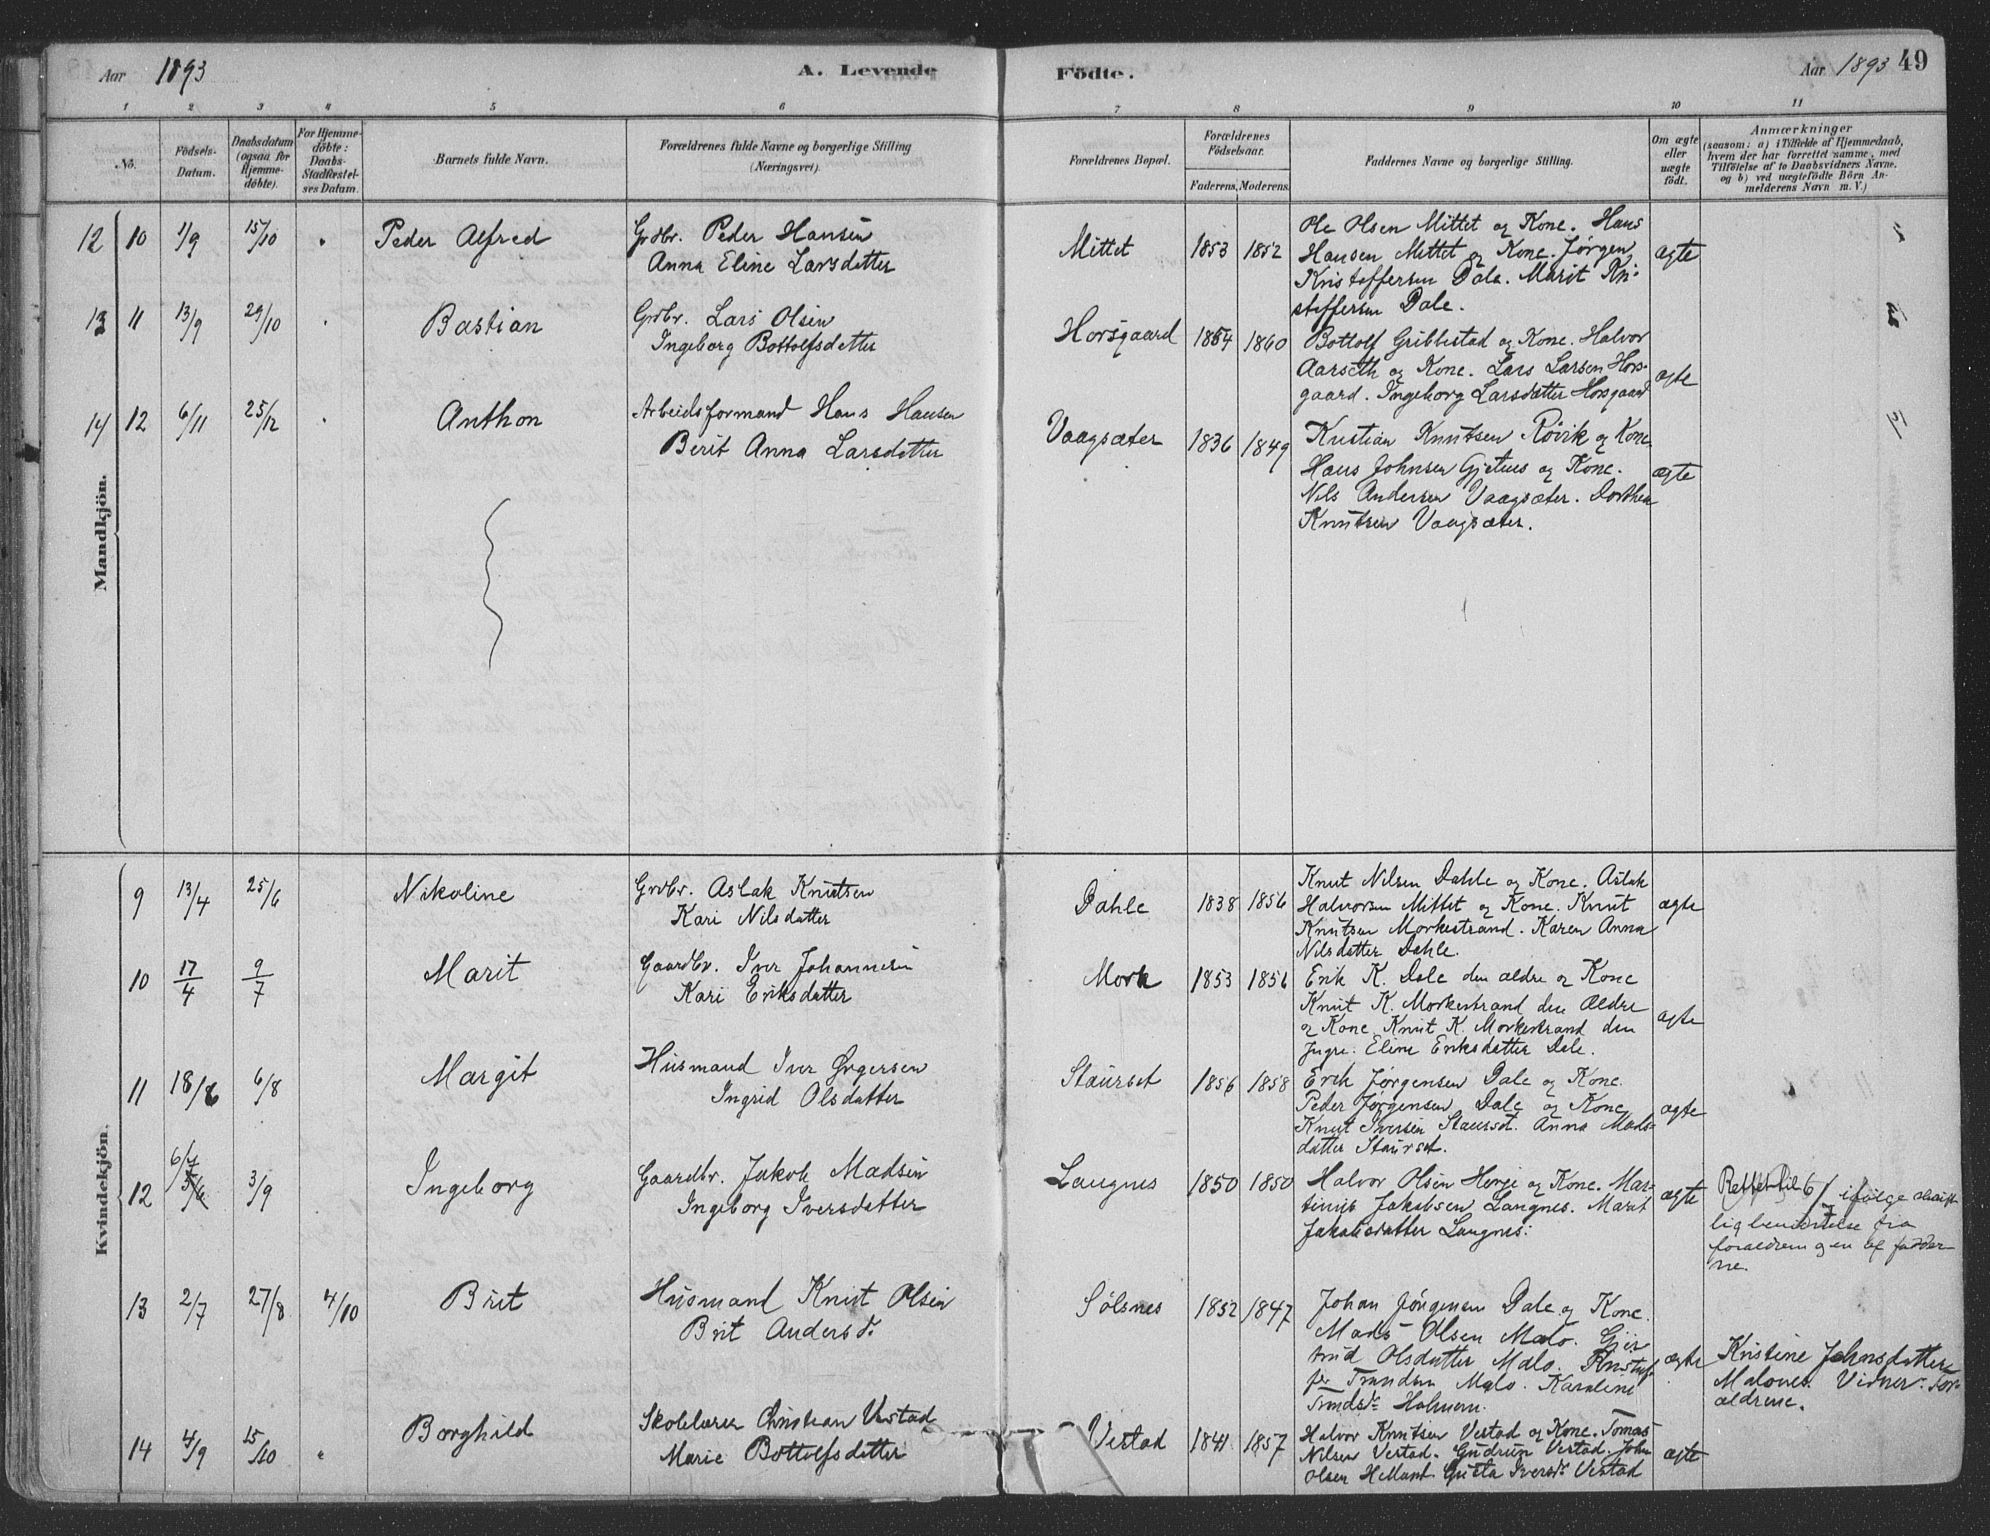 Aar 1893 A. Levende Födte. Aar 1893 49
1 2 3 4 5 6 7 8 9 10 11
No.
Födsels-
Datum.
Daabsdatum
(ogsaa for
Hjemme-
döbte).
For Hjemme-
döbte:
Daabs-
Stadfæstel-
ses Datum.
Barnets fulde Navn.
Forældrenes fulde Navne og borgerlige Stilling
(Næringsvei).
Forældrenes Bopæl.
Forældrenes
Födselsaar.
Faderens. Moderens.
Faddernes Navne og borgerlige Stilling.
Om ægte
eller
uægte
födt.
Anmærkninger
(saasom: a) i Tilfælde af Hjemmedaab,
hvem der har forrettet samme, med
Tilföielse af to Daabsvidners Navne.
og b) ved uægtefödte Börn An-
melderens Navn m. V.)
Mandkjön.
12 10 1/9 15/10 Peder Alfred
Grdbr. Peder Hansen
Anna Eline Larsdatter
Mittet 1853 1852
Ole Olsen Mittet og Kone. Hans
Hansen Mittet og Kone. Jørgen
Kristoffersen Dale. Marit Kri-
stoffersen Dale.
ægte
13 11 13/9 29/10 Bastian
Grdbr. Lars Olsen
Ingeborg Bottolfsdatter
Horsgaard 1854 1860
Bottolf Gribbestad og Kone. Halvor
Aarseth og Kone. Lars Larsen Hors-
gaard. Ingeborg Larsdatter Horsgaard
ægte
14 12 6/11 25/12 Anthon
Arbeidsformand Hans Hansen
Berit Anna Larsdatter
Vaagsæter 1836 1849
Kristian Knutsen Røvik og Kone
Hans Johnsen Gjetnes og Kone.
Nils Andersen Vaagsæter. Dorthea
Knutsen Vaagsæter.
ægte
Kvindekjön.
9 13/4 25/6 Nikoline
Grdbr. Aslak Knutsen
Kari Nilsdatter
Dahle 1838 1856
Knut Nilsen Dahle og Kone. Aslak
Halvorsen Mittet og Kone. Knut
Knutsen Morkestrand. Karen Anna
Nilsdatter Dahle.
ægte
10 17/4 9/7 Marit
Gaardbr. Iver Johannesen
Kari Eriksdatter
Mork 1853 1856
Erik K. Dale den ældre og Kone
Knut K. Morkestrand den Ældre
og Kone. Knut K. Morkestrand den
Yngre. Eline Eriksdatter Dale.
ægte
11 18/6 6/8 Margit
Husmand Iver
Ingrid Olsdatter
Staurset 1856 1858
Erik Jørgensen Dale og Kone.
Peder Jørgensen Dale og Kone
Knut Iversen Staurset. Anna Mads-
datter Staurset.
ægte
12 6/7 3/9 Ingeborg
Gaardbr. Jakob Madsen
Ingeborg Iversdatter
Langnes 1850 1850
Halvor Olsen Herje og Kone. Mar-
tinus Jakobsen Langnes. Marit
Jakobsdatter Langnes.
ægte
Rettet til 6/7 ifølge skrift-
lig bevidnelse fra
forældrene og en af fadder-
ne.
13 2/7 27/8 4/10 Brit
Husmand Knut Olsen
Brit Andersd.
Sølsnes 1852 1847
Johan Jörgensen Dale og Kone.
Mads Olsen Malo. Gjer
trud Olsdatter Malo. Kristof-
fer Trondsen Malo. Karoline
Trondsd.
ægte
Kristine Johnsdatter
Malones. Vidner: For-
ældrene.
14 4/9 15/10 Borghild
Skolelærer Christian Vestad
Marie Bottolfsdatter
Vestad 1841 1857
Halvor Knutsen Vestad og Kone. Tomas
Nilsen Vestad. Gudrun Vestad. John
Olsen Helland. Gusta Iversd. Vestad
ægte